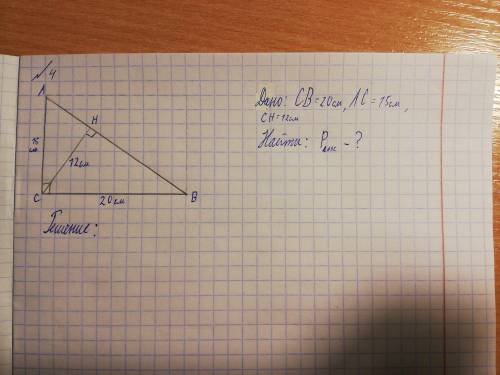 №4
A
H
15 см
12см
C
20см
B
Дано: CB=20см, AC=15см,
CH=12см
Найти: P -?
Решение: